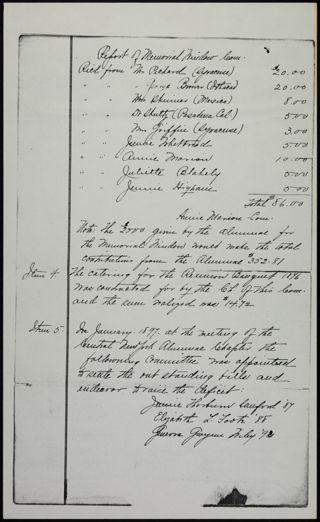 Report of Memorial Window Com.
Rec'd from Mr Packard (Syracuse) $20.00
" " " Brown (Ottawa) 20.00
" " Wm Skinner (Mexico) 8.00
" " Dr Shutty (Pasadena Cal.) 5.00
" " Wm Griffin (Syracuse) 3.00
" " Jennie Whitbread 5.00
" " Annie Marion 10.00
" " Juliette Blakely 5.00
" " Jennie 5.00
Total $86.00
Annie Marion Com.
Note the given by the Alumnae for
the Memorial Window would make the total
contribution from the Alumnae $352.81
Item 4. The catering for the Reunion Banquet 1896
was contracted for by the Ch. of this Com.
and the sum realized was $14.72
Item 5. In January 1897, at the meeting of the
Central New York Alumnae Chapter the
following Committee was appointed
to state the out standing bills and
endeavor to raise the deficit.
Jennie Sanford '87
Elizabeth L. Foote '88
Riley '92